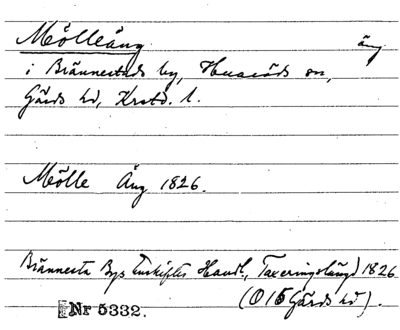 Mölleäng äng
i Brännestads by, Huaröds sn,
Gärds hd, Krstd. l.
Mölle Äng 1826.
Brännesta Bys Enskiftes Handl., Taxeringslängd 1826
(O 15 Gärds hd).
Nr 5332.